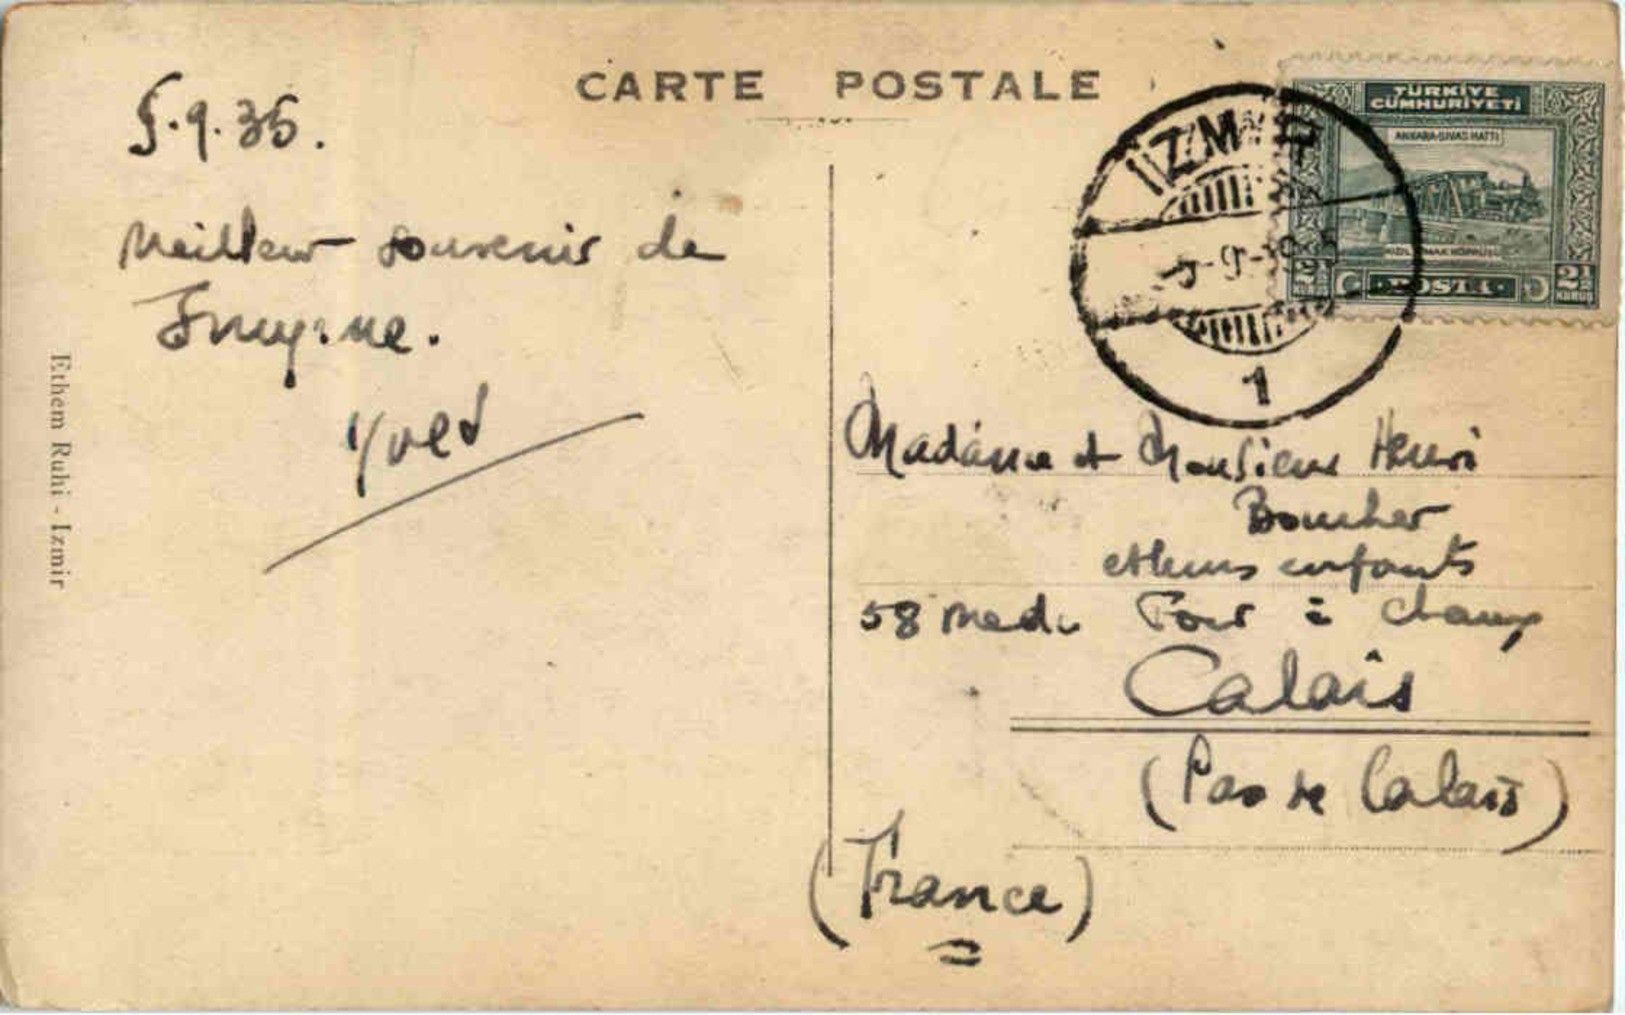 CARTE POSTALE
5.9.35.
Meilleur souvenir de
Smyrne.
Yves
Ethem Ruhi - Izmir
TÜRKİYE
CÜMHURİYETİ
ANKARA-SIVAS HATTI
POSTA
2½
KURUŞ
IZMIR
5-9-35
1
Madame et Monsieur Henri
et leurs enfants
58 Four à chaux
Calais
(Pas de Calais)
(France)